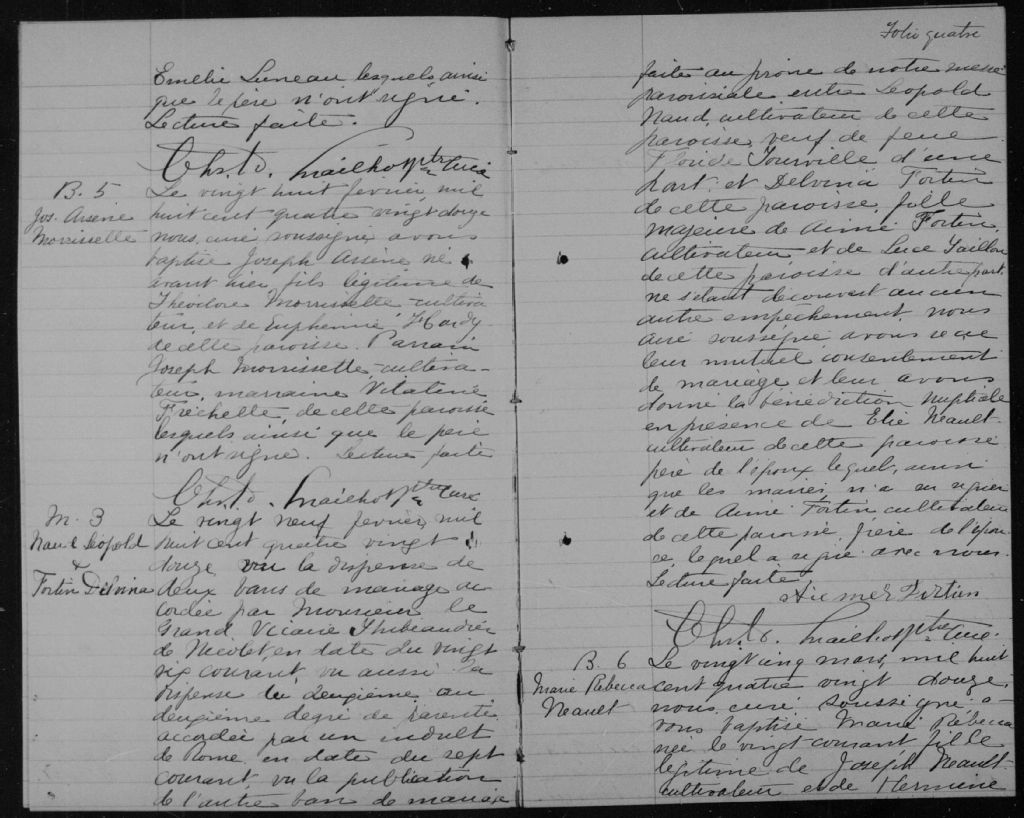 Emelie Luneau lesquels ainsi
que le père n'ont signé.
Lecture faite.
Chs. D. Mailhot Ptre Curé
B. 5
Jos. Arsène
Morrissette
Le vingt huit février mil
huit cent quatre vingt douze
nous, curé soussigné avons
baptisé Joseph Arsène né
avant hier fils légitime de
Théodore Morrissette cultiva
teur, et de Euphémie Hardy
de cette paroisse. Parrain
Joseph Morrissette, cultiva-
teur, marraine Vitaline
Fréchette, de cette paroisse
lesquels ainsi que le père
n'ont signé. Lecture faite
Chs. D. Mailhot Ptre Curé
M. 3
Naud Léopold
&
Fortin Délvina
Le vingt neuf février, mil
huit cent quatre vingt
douze, vu la dispense de
deux bans de mariage ac
cordée par Monsieur le
Grand Vicaire Thibaudier
de Nicolet, en date du vingt
six courant, vu aussi la
dispense du deuxième au
deuxième degré de parenté
accordée par un indult
de Rome, en date du sept
courant, vu la publication
de l'autre ban de mariage
Folio quatre
faite au prône de notre messe
paroissiale entre Léopold
Naud, cultivateur de cette
paroisse, veuf de feue
Floride Tourville d'une
part; et Délvina Fortin
de cette paroisse, fille
majeure de Aimé Fortin,
cultivateur, et de Luce Taillon
de cette paroisse d'autre part
ne s'étant découvert aucun
autre empêchement, nous
curé soussigné avons reçu
leur mutuel consentement
de mariage et leur avons
donné la bénédiction nuptiale
en présence de Elie Neault
cultivateur de cette paroisse
père de l'époux lequel, ainsi
que les mariés, n'a su signer
et de Aimé Fortin cultivateur
de cette paroisse, frère de l'épou
se, lequel a signé avec nous.
Lecture faite.
Aimé Fortin
Chs. D. Mailhot Ptre Curé.
B. 6
Marie Rébecca
Neault
Le vingt cinq mars, mil huit
cent quatre vingt douze,
nous, curé soussigné a-
vons baptisé Marie Rébecca
née le vingt courant fille
légitime de Joseph Neault
cultivateur et de Hermine